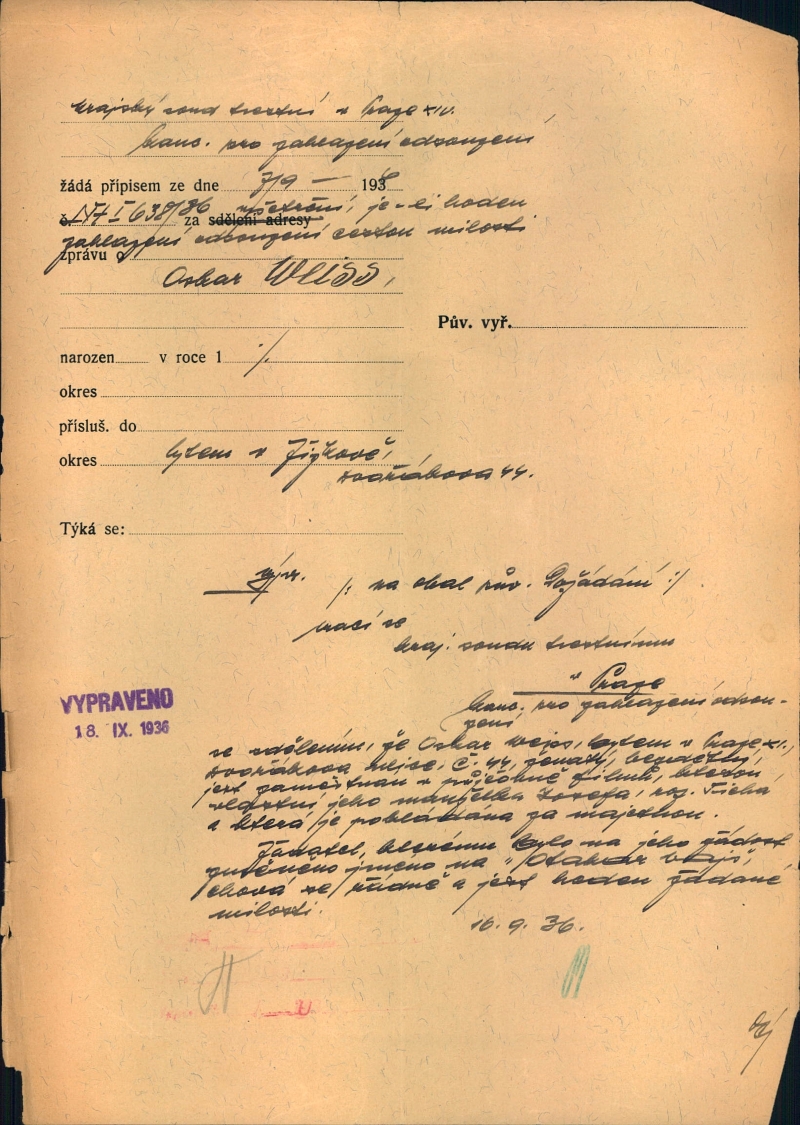 krajský soud trestní v Praze XIV.
kanc. pro zahlazení odsouzení
žádá přípisem ze dne 7/9 — 1936
č. Nt I 638/36 za sdělení adresy vyšetření, je-li hoden
zahlazení odsouzení cestou milosti
zprávu o
Oskar Weiss,
Pův. vyř.
narozen v roce 1 /.
okres
přísluš. do
okres bytem v Žižkově,
Dvořákova 44.
Týká se:
/: na obal pův. Dožádání :/
vrací se
kraj. soudu trestnímu
v Praze
kanc. pro zahlazení odsou-
zení
VYPRAVENO
18. IX. 1936
se sdělením, že Oskar Wejs, bytem v Praze XI.,
Dvořákova ulice, č. 44, ženatý, bezdětný,
jest zaměstnán v půjčovně filmů, kterou
vlastní jeho manželka Josefa, roz. Tichá
a která je pokládána za majetnou.
Žadatel, kterému bylo na jeho žádost
změněno jméno na "Otakar Vajs",
chová se řádně a jest hoden žádané
milosti.
16. 9. 36.